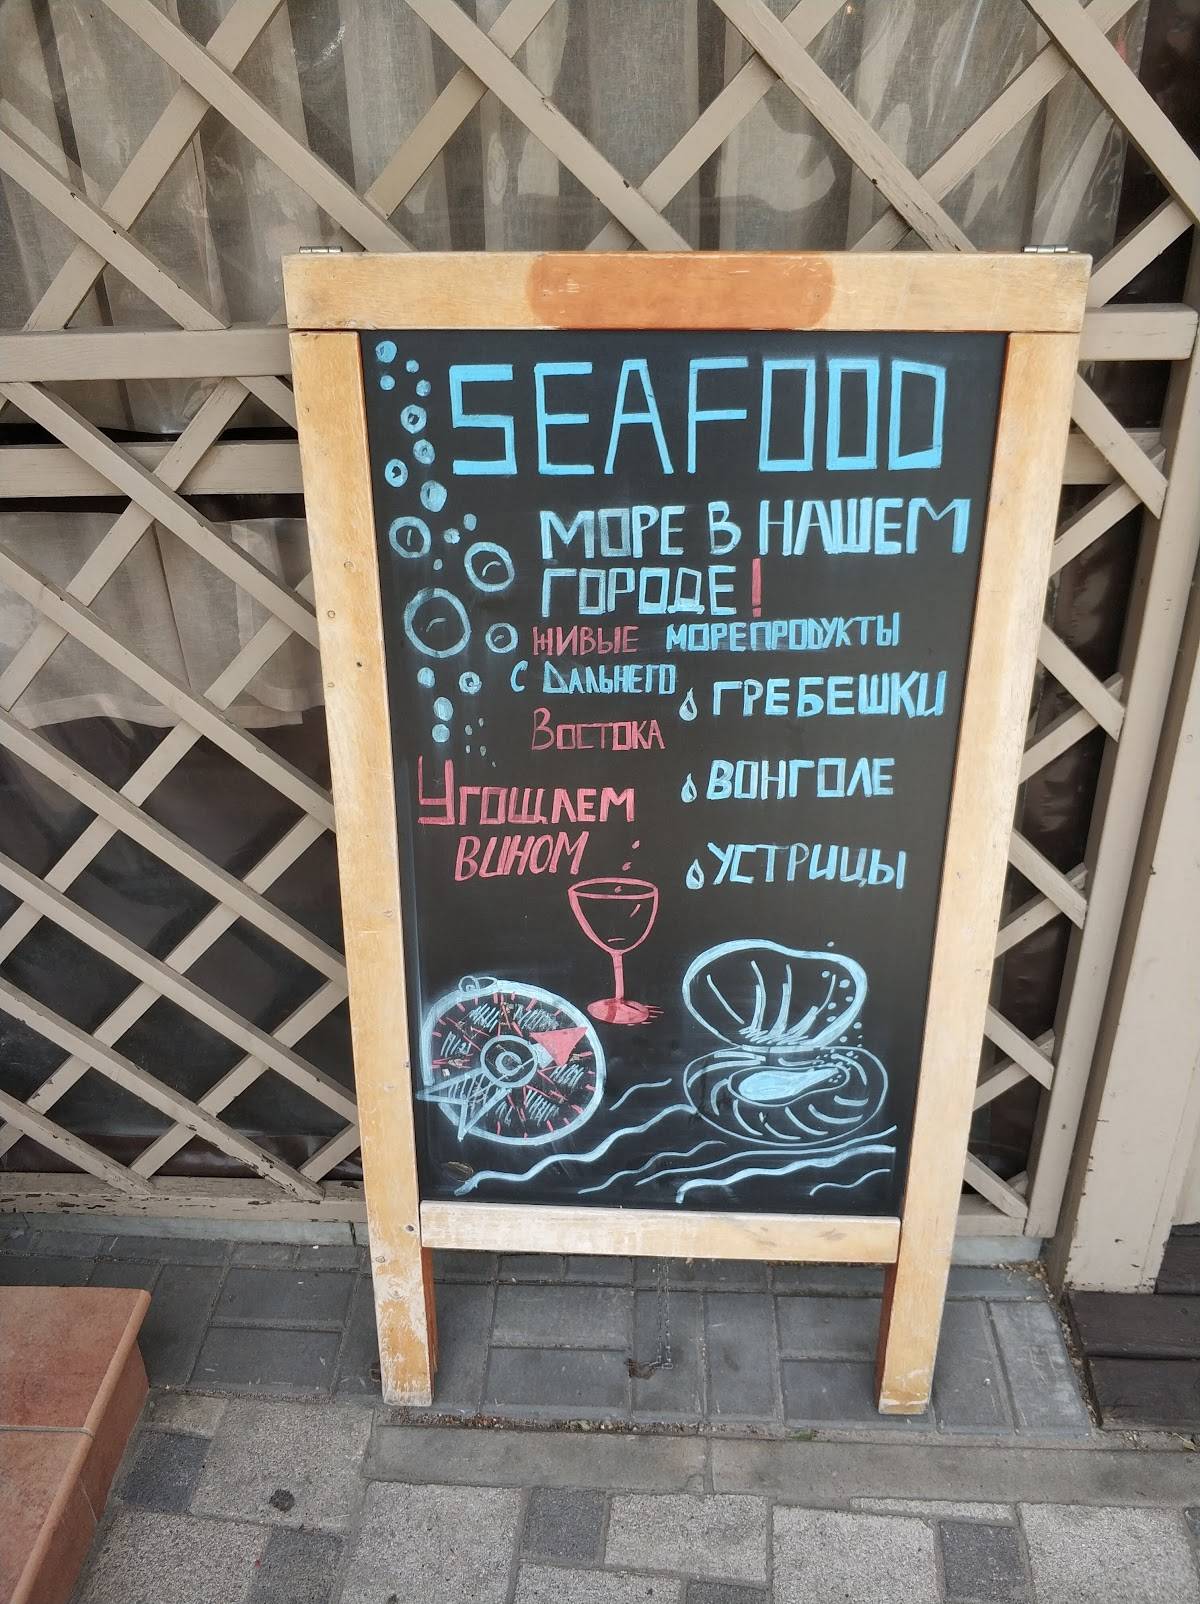 SEAFOOD
МОРЕ В НАШЕМ
ГОРОДЕ!
ЖИВЫЕ МОРЕПРОДУКТЫ
С ДАЛЬНЕГО
ВОСТОКА
ГРЕБЕШКИ
ВОНГОЛЕ
УСТРИЦЫ
УГОЩАЕМ
ВИНОМ